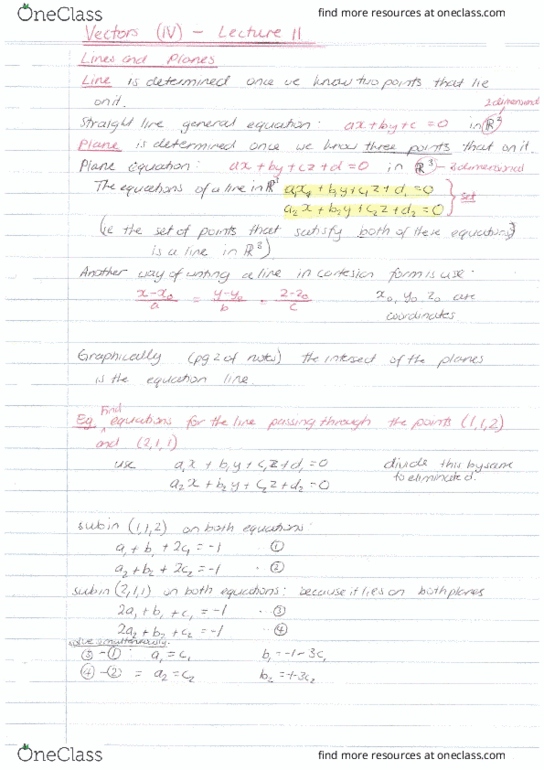 OneClass
find more resources at oneclass.com
Vectors (IV) - Lecture 11
Lines and Planes
Line is determined once we know two points that lie
on it.
2 dimensional
Straight line general equation: ax + by + c = 0 in ℝ²
Plane is determined once we know three points that on it.
Plane equation: ax + by + cz + d = 0 in ℝ³ - 3 dimensional
The equations of a line in ℝ³ a₁x + b₁y + c₁z + d₁ = 0
a₂x + b₂y + c₂z + d₂ = 0 } set
(ie the set of points that satisfy both of these equations
is a line in ℝ³)
Another way of writing a line in cartesian form is use:
x-x₀/a = y-y₀/b = z-z₀/c x₀, y₀, z₀ are
coordinates
Graphically (pg 2 of notes) the intersect of the planes
is the equation line.
Eg. Find equations for the line passing through the points (1,1,2)
and (2,1,1)
use a₁x + b₁y + c₁z + d₁ = 0 divide this by same
a₂x + b₂y + c₂z + d₂ = 0 to eliminate d.
sub in (1,1,2) on both equations:
a₁ + b₁ + 2c₁ = -1 ①
a₂ + b₂ + 2c₂ = -1 ②
sub in (2,1,1) on both equations: because it lies on both planes
2a₁ + b₁ + c₁ = -1 ③
2a₂ + b₂ + c₂ = -1 ④
solve simultaneously.
③ - ①: a₁ = c₁ b₁ = -1 - 3c₁
④ - ② = a₂ = c₂ b₂ = -1 - 3c₂
OneClass
find more resources at oneclass.com